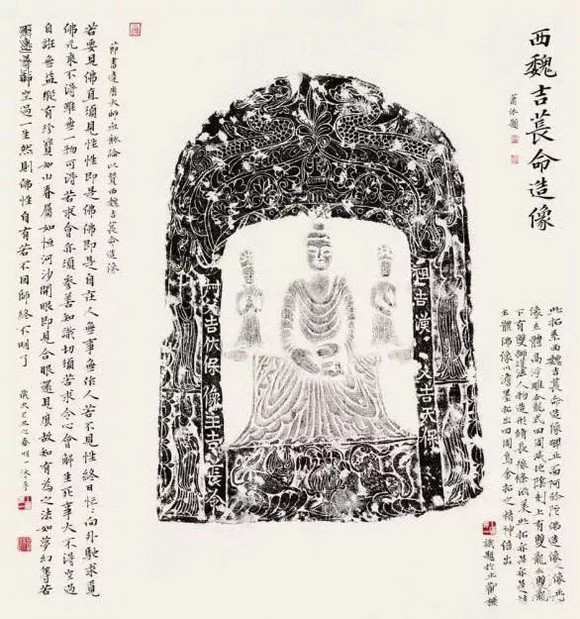 西魏吉萇命造像
題
此拓系西魏吉萇命造像碑正面阿弥陀佛造像像
像立體高浮雕 龍式四周減地陰刻上有雙龍 雙龍
下有雙獅護法人物造形修長像 美此拓亦
主體佛像以淡墨拓出四周烏金拓之精神倍出
識題於止觀樓
祖吉漢 父吉天保
父吉伏保 像主吉長命
節書達磨大師血脉論以贊西魏吉萇命造像
若要見佛直須見性性即是佛佛即是自在人無事無作人若不見性終日忙忙向外馳求覓
佛元來不得雖無一物可得若求會亦須參善知識切須苦求令心會解生死事大不得空過
自誑無益縱有珍寶如山眷屬如恒河沙開眼即見合眼還見麼故知有為之法如夢幻等若
不急尋師空過一生然則佛性自有若不因師終不明了
歲次己丑之春明一沐手